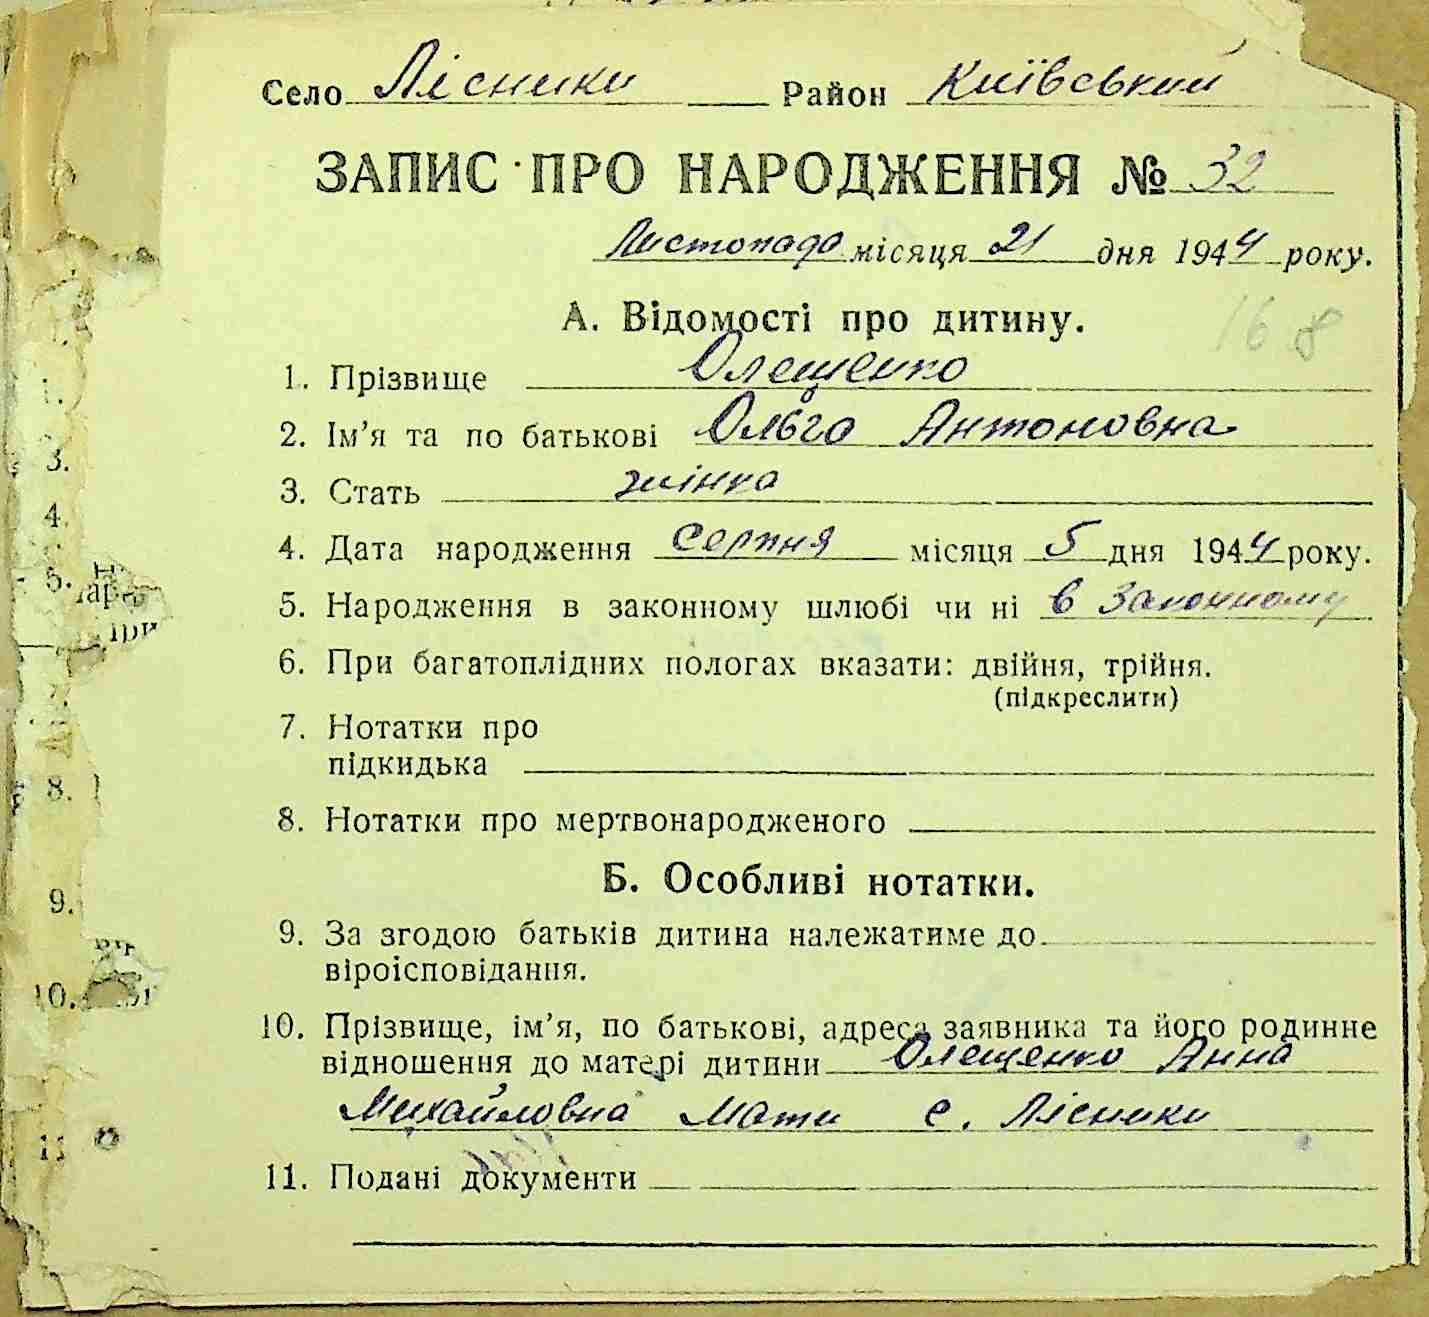 Село Лісники Район Київський
ЗАПИС ПРО НАРОДЖЕННЯ № 32
Листопада місяця 21 дня 1944 року.
А. Відомості про дитину.
168
1. Прізвище Олещенко
2. Ім’я та по батькові Ольга Антоновна
3. Стать жінка
4. Дата народження Серпня місяця 5 дня 1944 року.
5. Народження в законному шлюбі чи ні в законному
6. При багатоплідних пологах вказати: двійня, трійня.
(підкреслити)
7. Нотатки про
підкидька
8. Нотатки про мертвонародженого
Б. Особливі нотатки.
9. За згодою батьків дитина належатиме до
віроісповідання.
10. Прізвище, ім’я, по батькові, адреса заявника та його родинне
відношення до матері дитини Олещенко Анна
Михайловна Мати с. Лісники
11. Подані документи
1.
3.
4.
5.
8.
9.
10.
11